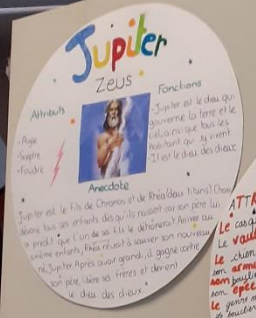 Jupiter
Zeus
Attributs
-Aigle
-Sceptre
-Foudre
Fonctions
-Jupiter est le dieu qui
gouverne la terre et le
ciel ainsi que tous les
habitant qui y vivent
-Il est le dieu des dieux.
Anecdote
Jupiter est le fils de Chronos et de Rhéa (deux titans)
dévore tous ses enfants dès qu'ils naissent car son père lui
a prédit que l'un de ses fils le détrônerait
enfants, Rhéa réussit à sauver son nouveau
né, Jupiter. Après avoir grandi, il gagne contre
son père, libère ses frères et devient
le dieu des dieux.
ATTR
Le casq
Le
Le chien
son
son
son épée
Le